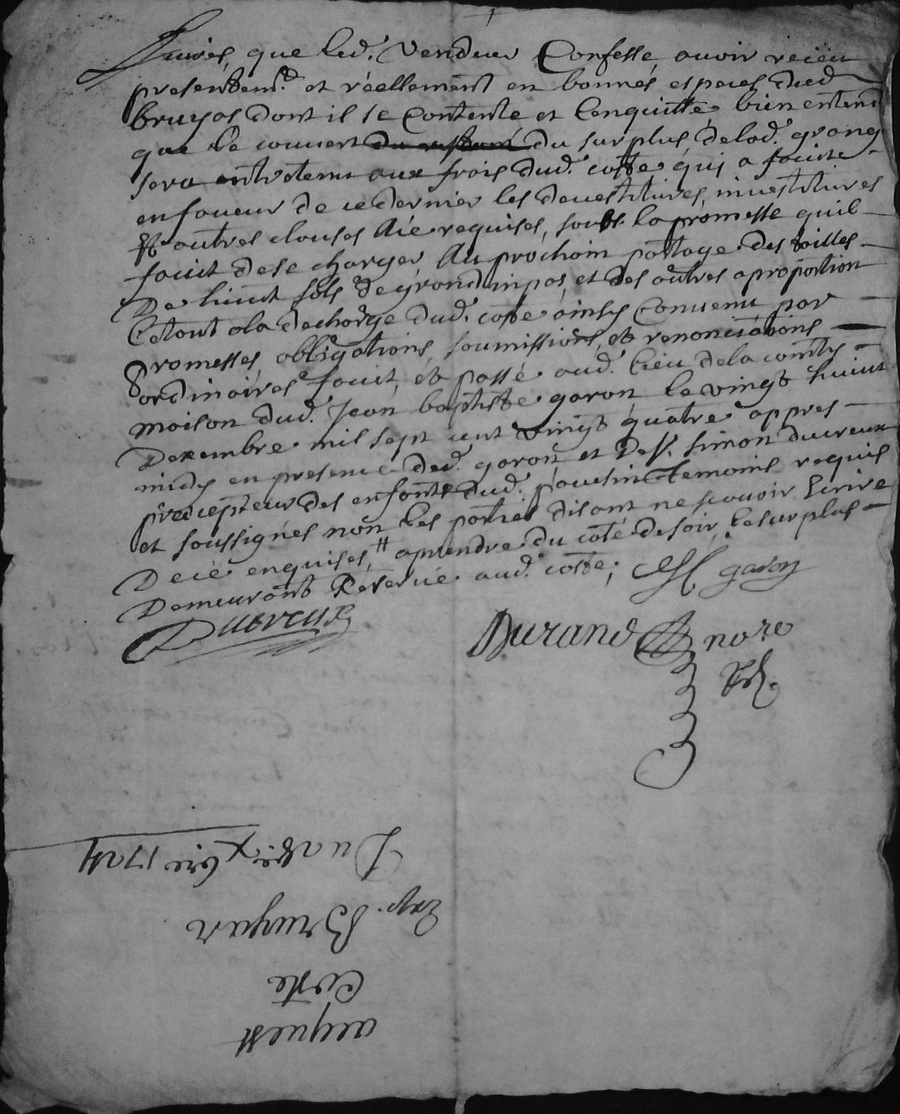 livres, que led. vendeur Confesse avoir receu
presentem.t et réellement en bonnes especes dud
bruyas dont il se Contente et lenquitte bien entendu
que le couvert du surplus delad. grange
sera entretenu aux frais dud. coste qui a faicte
en faveur de ce dernier les devestitures, investitures
Et autres clauses Aiè requises, soubs la promesse quil
faict de se charger Au prochain pattage des tailles
De huict sols de grand impos, et des autres a proportion
Et tout a la decharge dud. coste ainsy Convenu par
promesses obligations, soumissions, et renonciations
ordinaires faict, et passé aud. lieu de la
maison dud. Jean baptiste garon le vingt huict
Dexembre mil sept cent vingt quatre appres
midy en presence dud. garon et De Sr. Simon ducreux
précepteur des enfants dud. pousin temoins requis
et soussignés non les parties disant ne scavoir Ecrire
De ce enquises, # aprendre du coté de soir, le surplus
Demeurant Reservé aud. coste;
garon
Ducreux
Durand nore
Rl.
acquest
Coste
Bruyas
Du xbre 1724